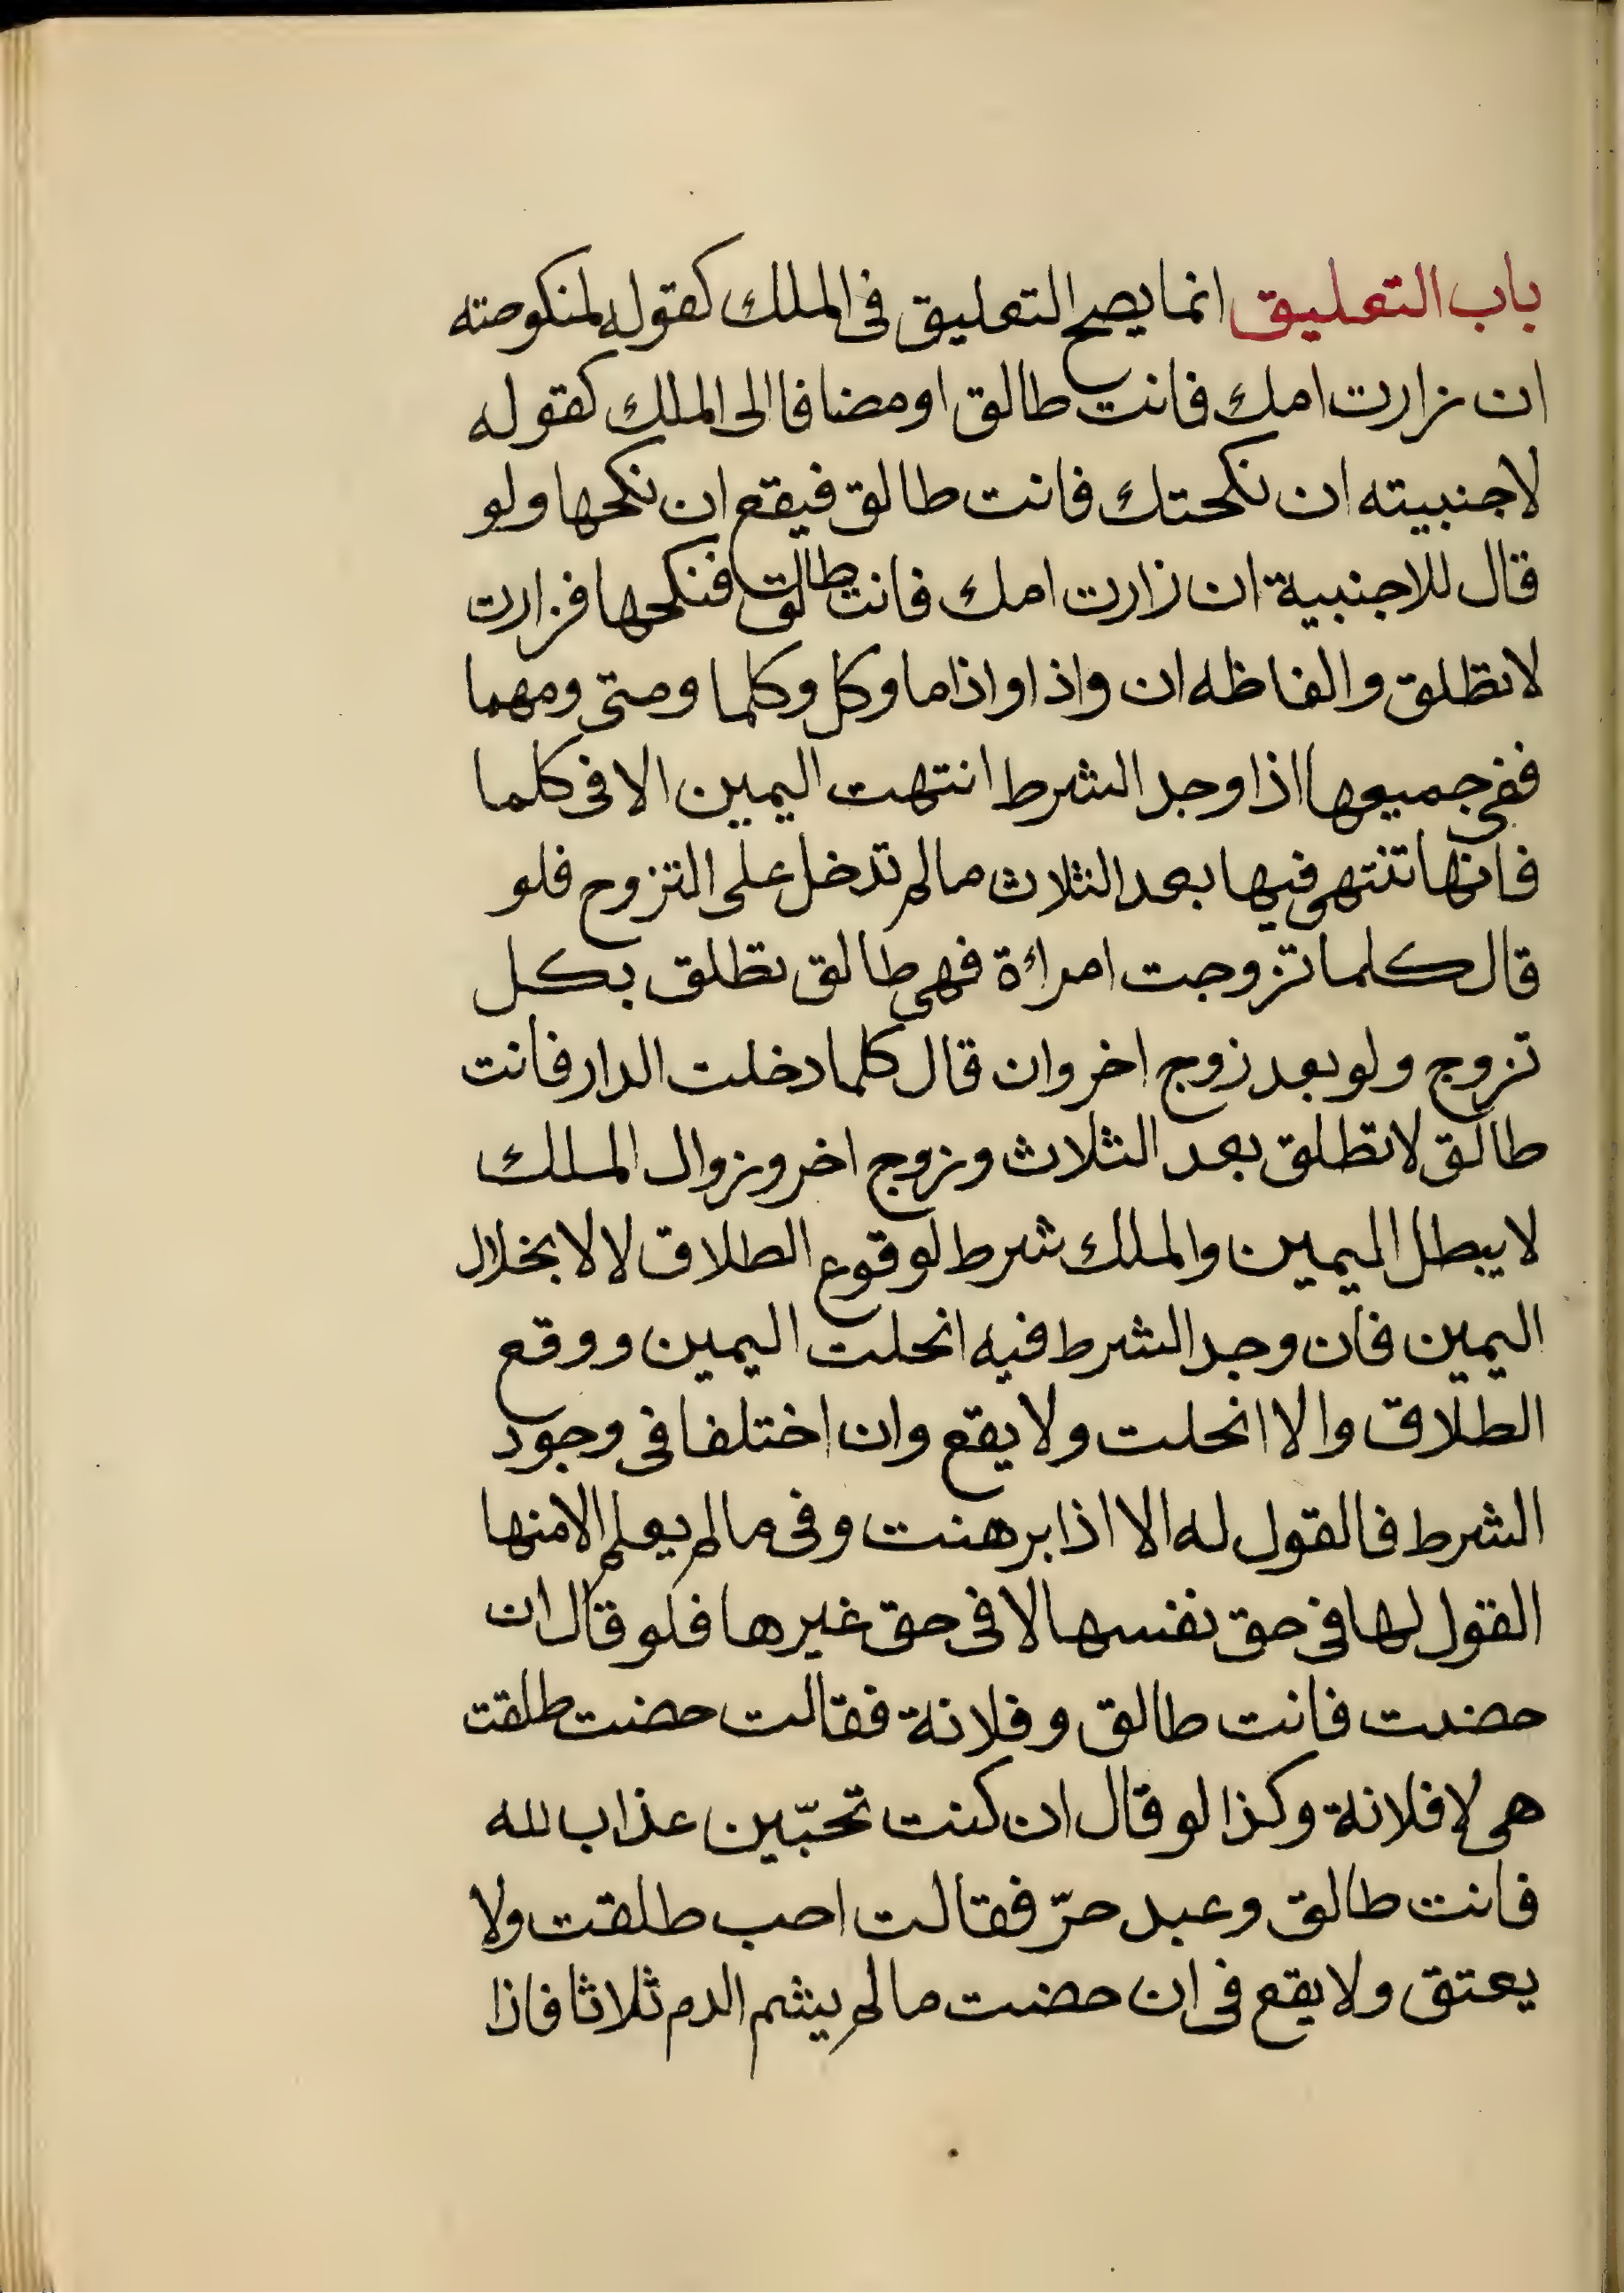 باب التعليق انما يصح التعليق فى الملك كقوله لمنكوحته
ان زارت امك فانت طالق او مضافا الى الملك كقوله
لاجنبيته ان نكحتك فانت طالق فيقع ان نكحها ولو
قال للاجنبية ان زارت امك فانت طالق فنكحها فزارت
لا تطلق والفاظه ان واذا واذا ما وكل وكلما ومتى ومهما
ففى جميعها اذا وجد الشرط انتهت اليمين الا فى كلما
فانها تنتهى فيها بعد الثلاث ما لم تدخل على التزوج فلو
قال كلما تزوجت امراءة فهى طالق تطلق بكل
تزوج ولو بعد زوج اخر وان قال كلما دخلت الدار فانت
طالق لا تطلق بعد الثلاث وزوج اخر وزوال الملك
لا يبطل اليمين والملك شرط لوقوع الطلاق لا لا بخلال
اليمين فان وجد الشرط فيه انحلت اليمين ووقع
الطلاق والا انحلت ولا يقع وان اختلفا فى وجود
الشرط فالقول له الا اذا برهنت وفى ما لم يعلم الا منها
القول لها فى حق نفسها لا فى حق غيرها فلو قال ان
حضت فانت طالق وفلانة فقالت حضت طلقت
هى لا فلانة وكذا لو قال ان كنت تحبّين عذاب لله
فانت طالق وعبد حرّ فقالت احب طلقت ولا
يعتق ولا يقع فى ان حضت ما لم يتم الدم ثلاثا فاذا